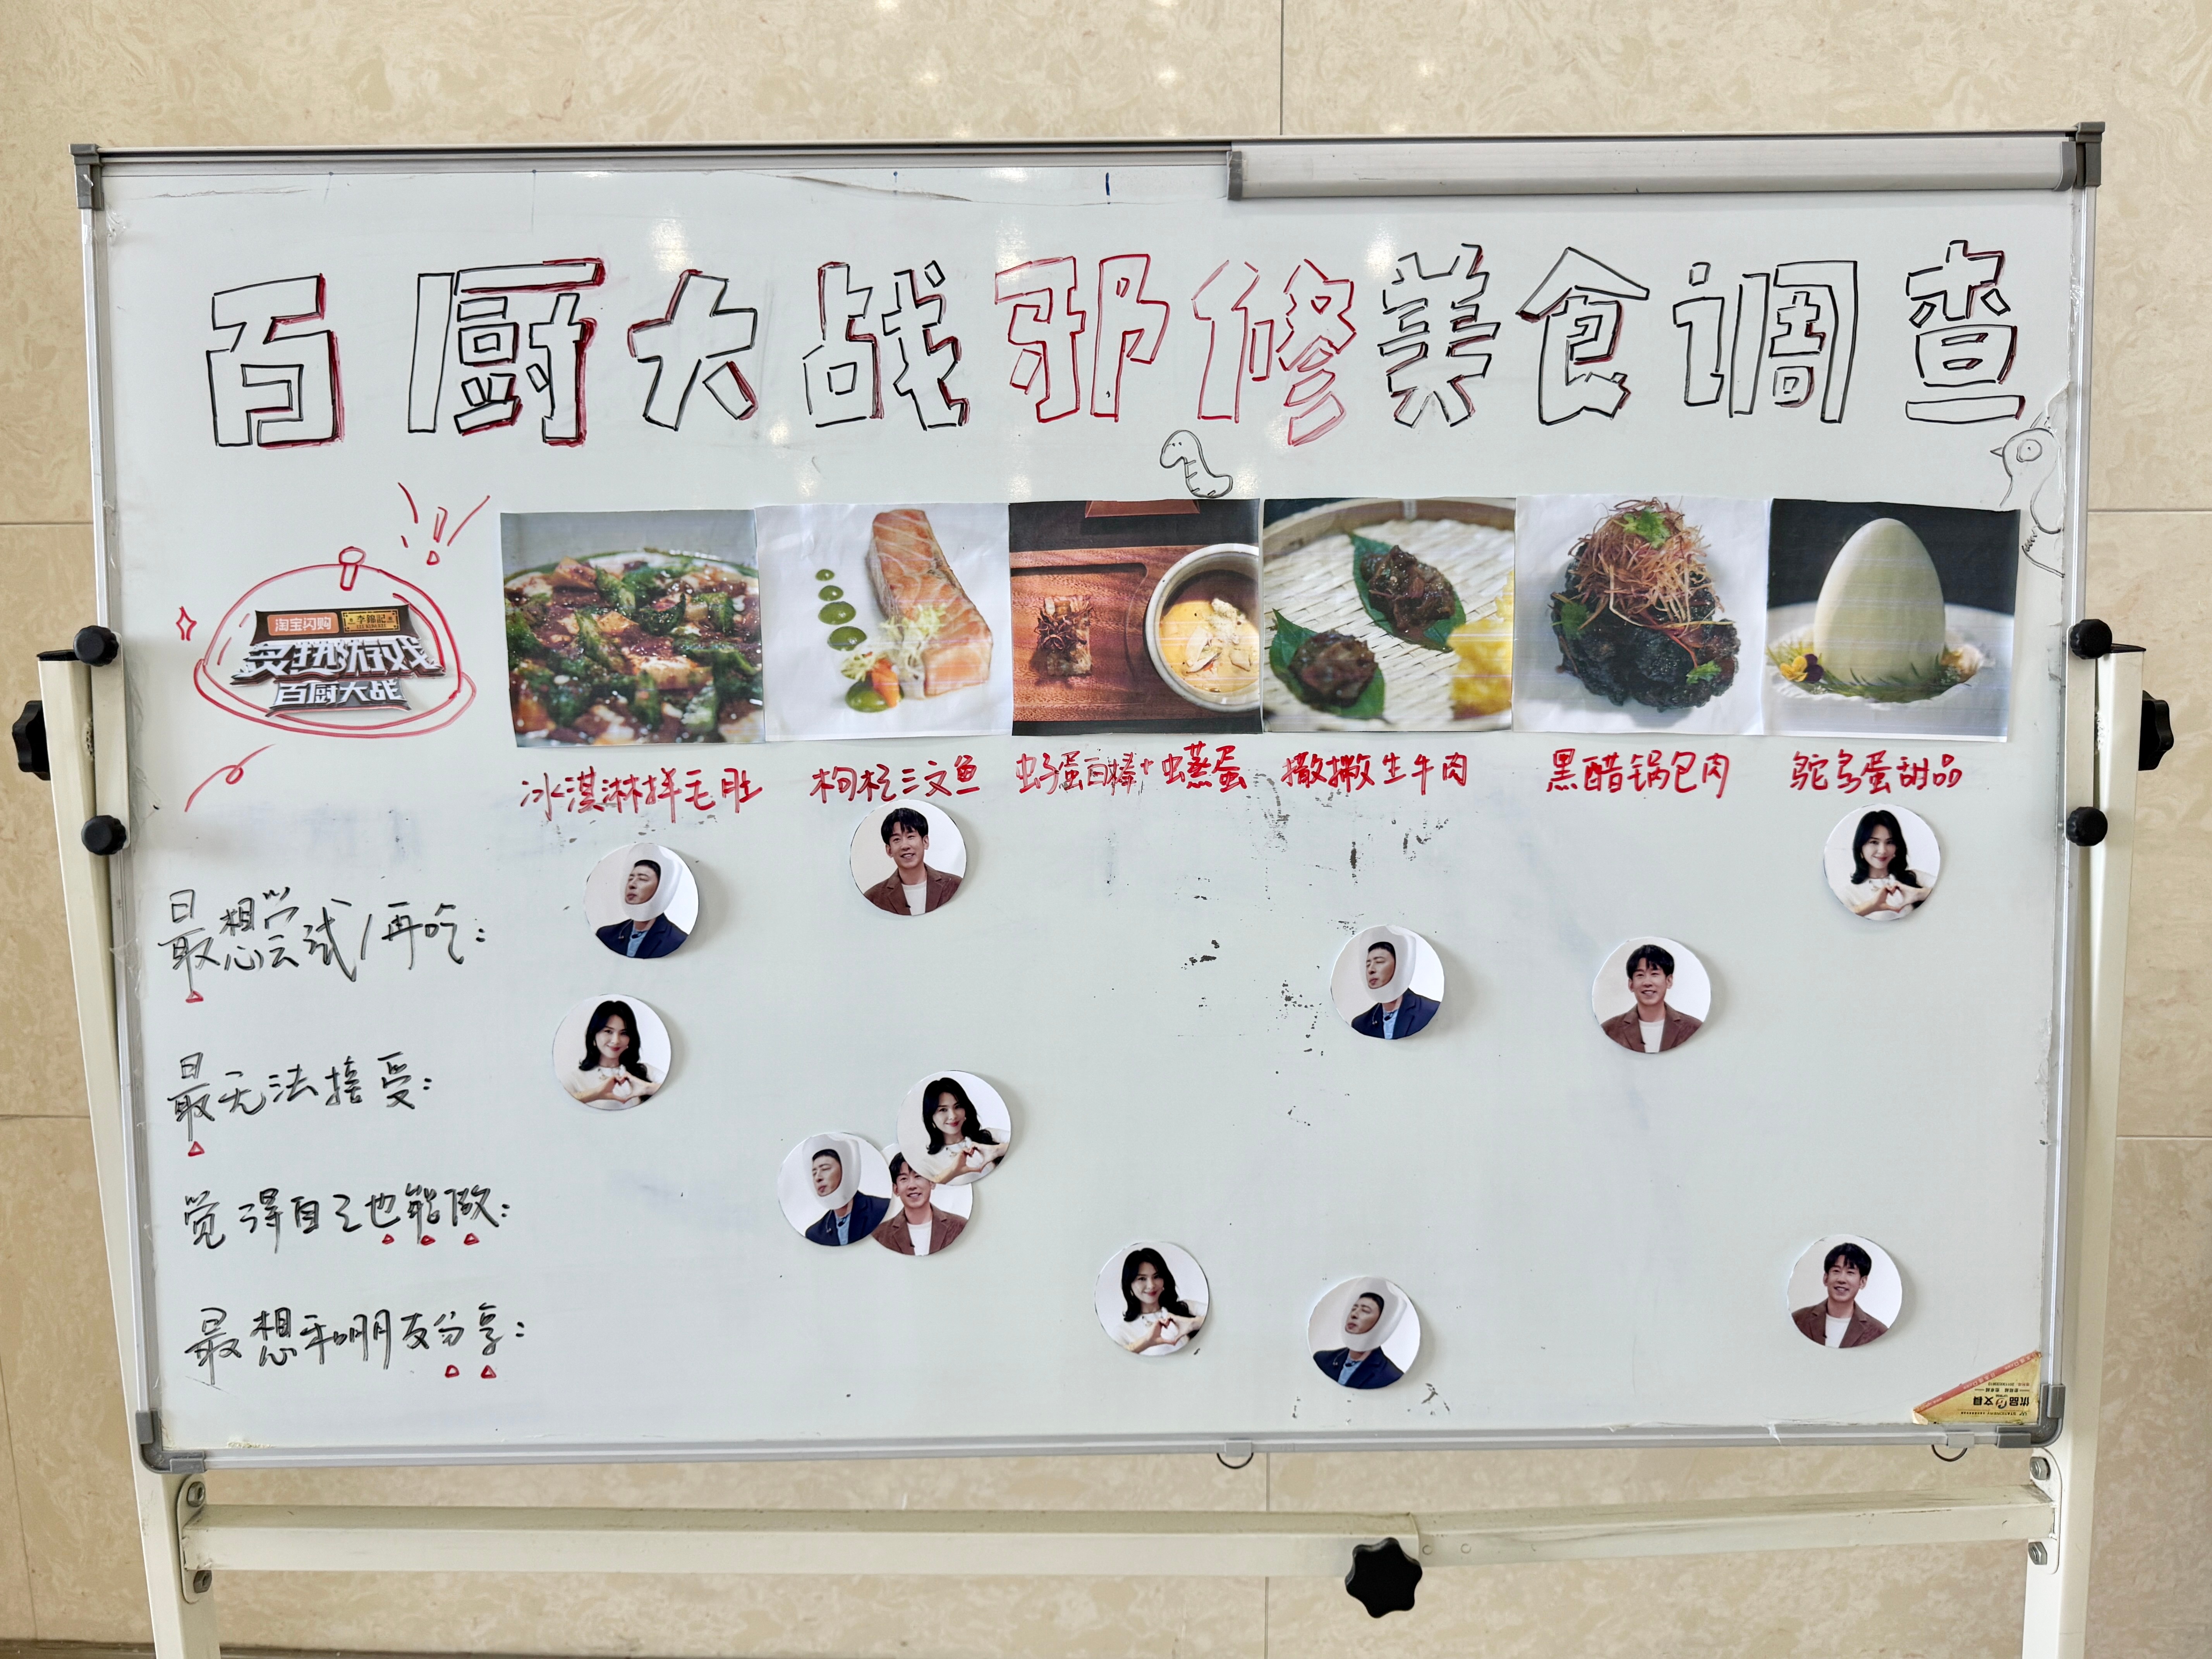 百厨大战邪修美食调查
淘宝闪购 李锦记
炙热游戏
百厨大战
冰淇淋拌毛肚
枸杞三文鱼
虫子蛋白棒+虫蒸蛋
撒撇生牛肉
黑醋锅包肉
鸵鸟蛋甜品
最想尝试/再吃:
最无法接受:
觉得自己也能做:
最想和朋友分享:
优品 文具